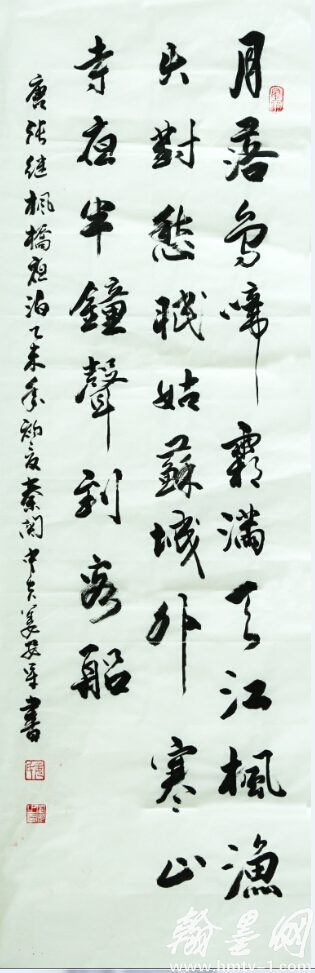 月落烏啼霜滿天江楓漁
火對愁眠姑蘇城外寒山
寺夜半鐘聲到客船
唐張继楓橋夜泊乙未年初夏秦關中書
翰墨网
www.hmtv-1.com